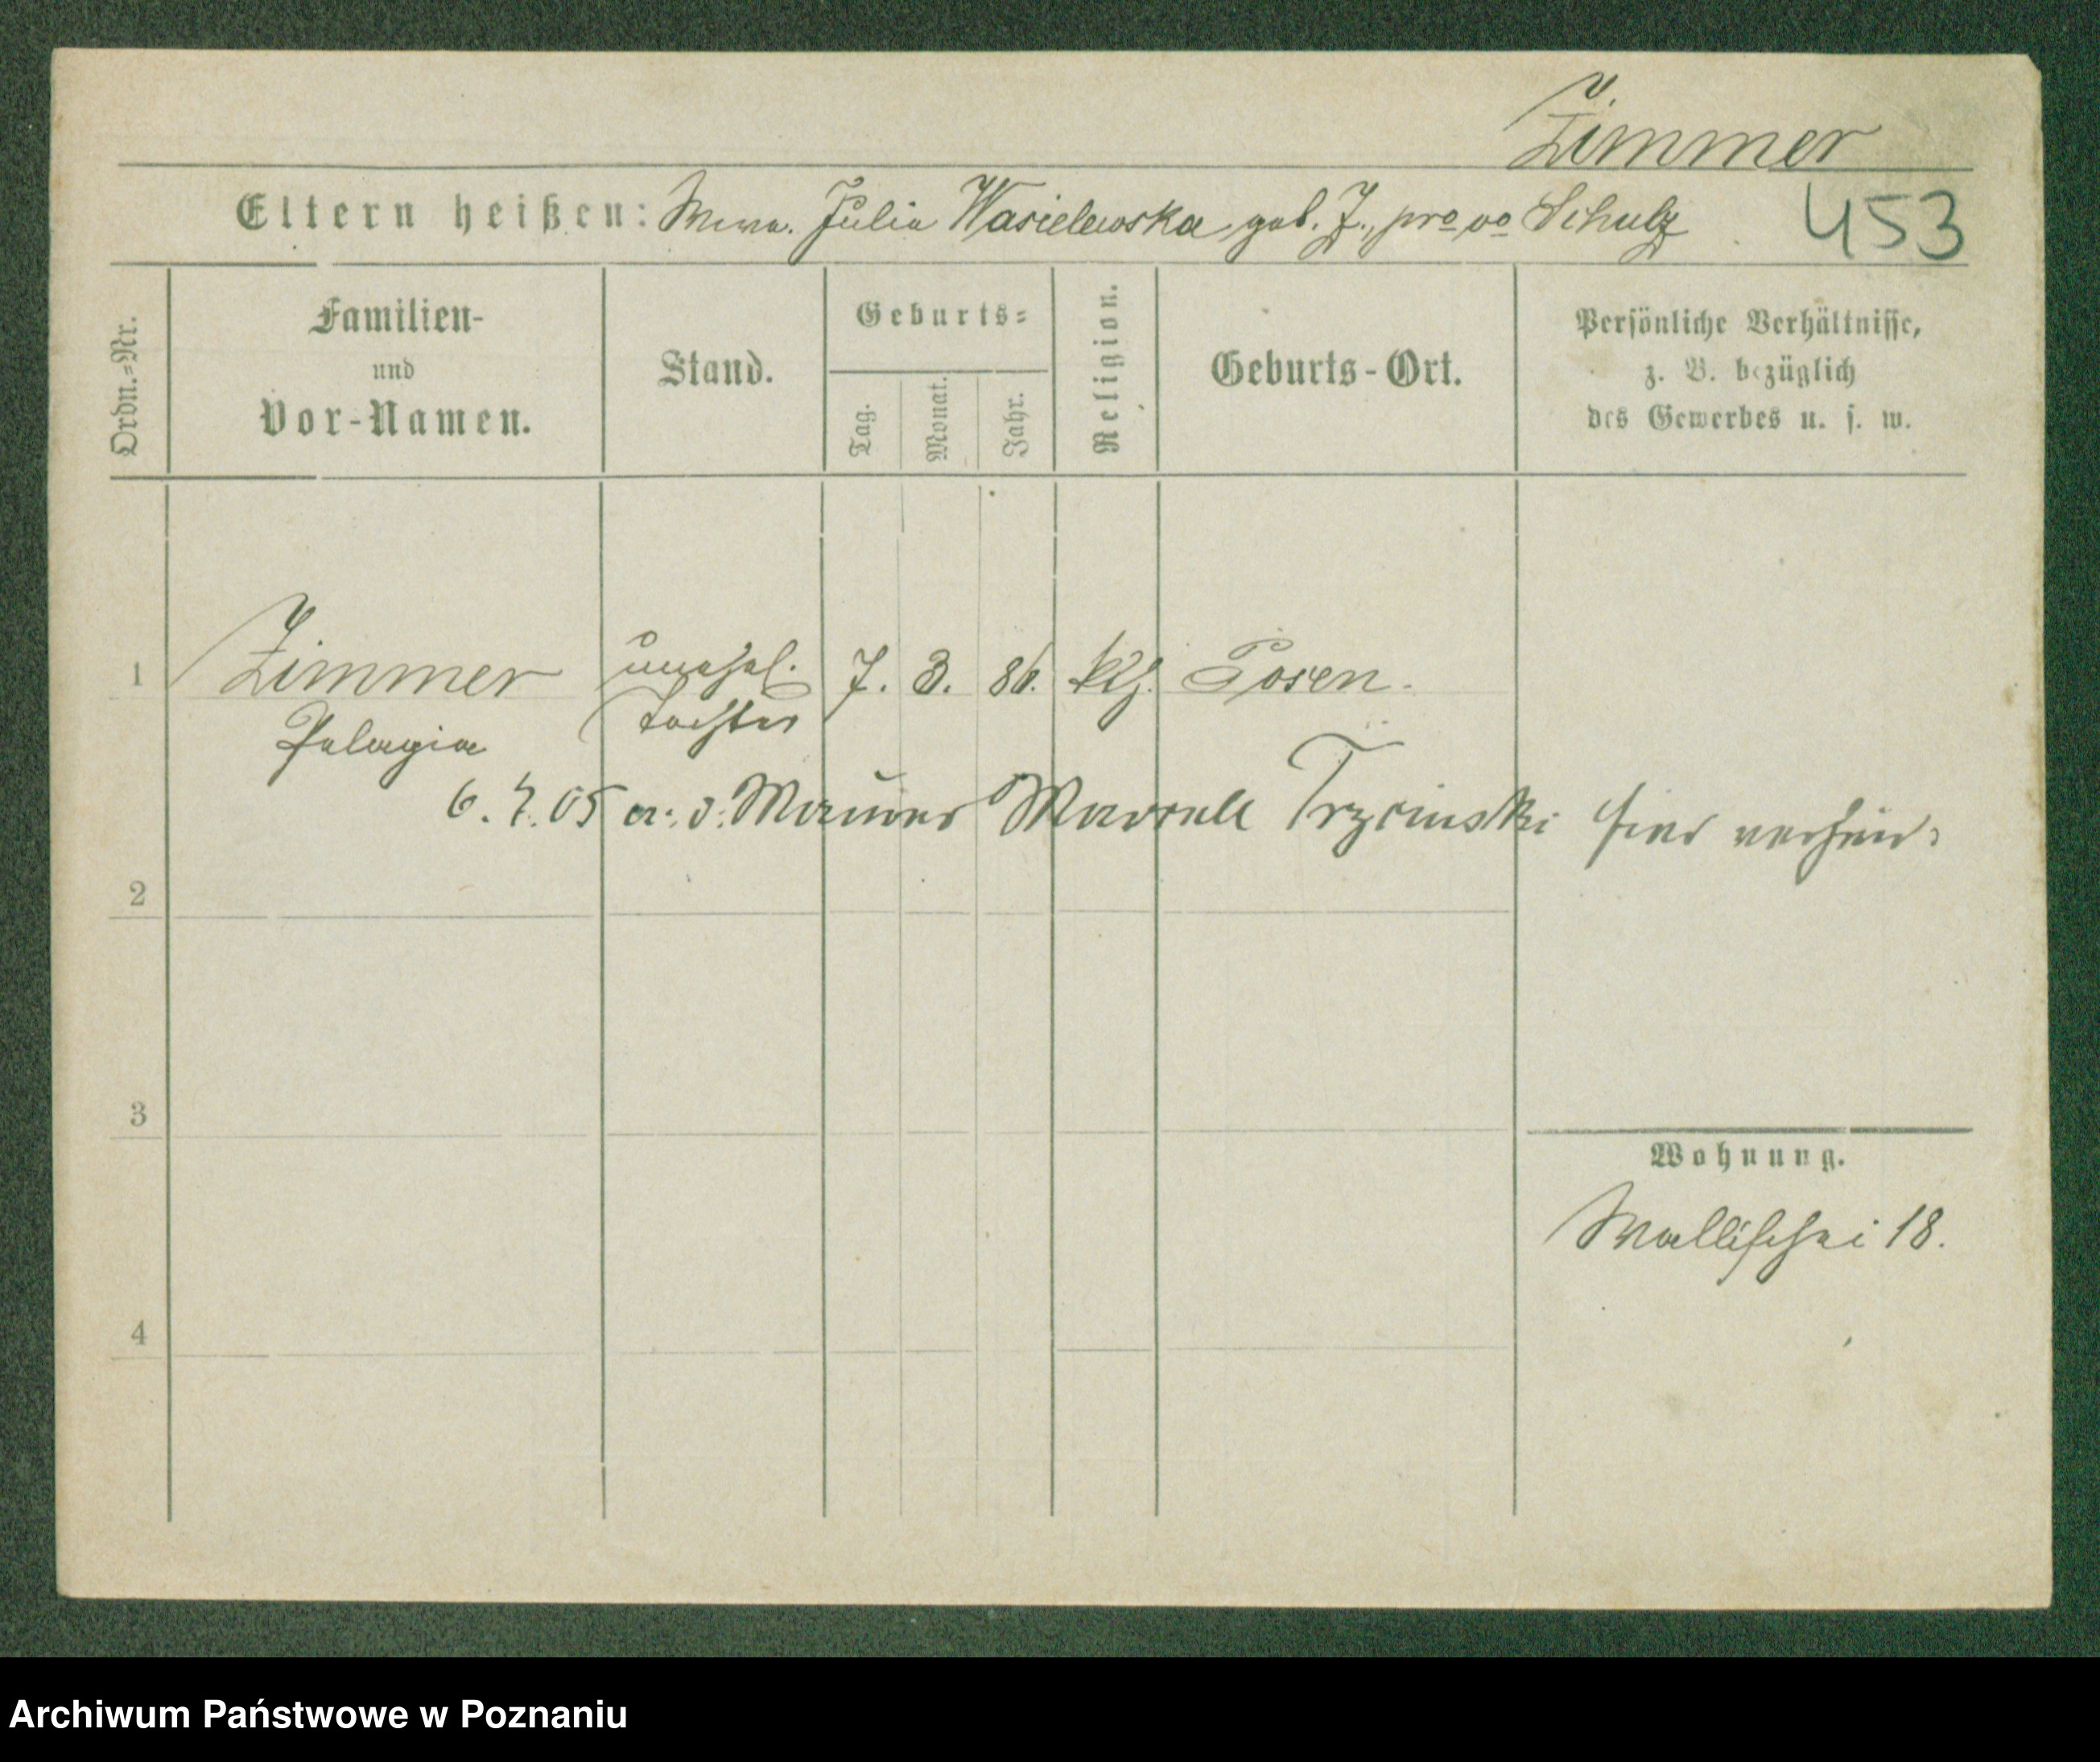 Zimmer
Eltern heißen: Wwe. Julia Wasielewska, geb. Z., pro vo Schulz
453
Ordn.=Nr.
Familien-
und
Vor-Namen.
Stand.
Geburts=
Tag.
Monat.
Jahr.
Religion.
Geburts-Ort.
Persönliche Verhältnisse,
z. B. bezüglich
des Gewerbes u. s. w.
1 Zimmer unehel. 7. 3. 86. kth. Posen.
Pelagia Tochter
6. 7. 05 a. d. Maurer Marcell Trzcinski hier verheir.
2
3
Wohnung.
Wallischei 18.
4
Archiwum Państwowe w Poznaniu